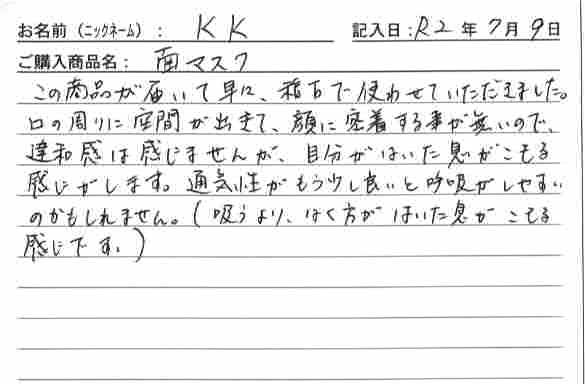 お名前（ニックネーム）： KK 記入日：R2年7月9日
ご購入商品名： 面マスク
この商品が届いて早速、稽古で使わせていただきました。
口の周りに空間が出きて、顔に密着する事が無いので、
違和感は感じませんが、自分がはいた息がこもる
感じがします。通気性がもう少し良いと呼吸がしやすい
のかもしれません。（吸うより、はく方がはいた息がこもる
感じです。）